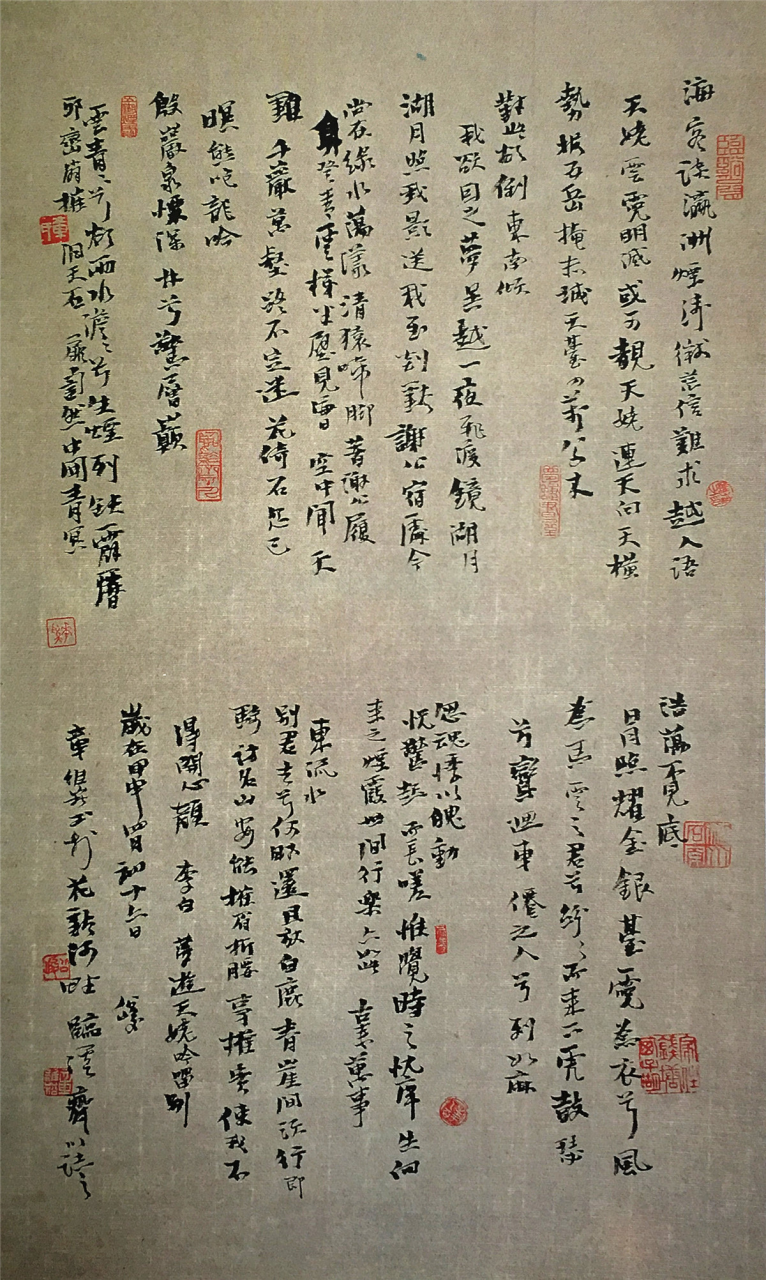 海客談瀛洲煙濤微茫信難求越人語
天姥雲霓明滅或可覩天姥連天向天橫
勢拔五岳掩赤城天臺四萬八千丈
對此欲倒東南傾
我欲因之夢吳越一夜飛渡鏡湖月
湖月照我影送我至剡谿謝公宿處今
尚在綠水蕩漾清猿啼脚著謝公屐
身登青雲梯半壁見海日空中聞天
雞千巖萬壑路不定迷花倚石忽已
暝熊咆龍吟
殷巖泉慄深林兮驚層巔
雲青青兮欲雨水澹澹兮生煙列缺霹靂
邱巒崩摧洞天石扉訇然中間青冥
浩蕩不見底
日月照耀金銀臺霓爲衣兮風
爲馬雲之君兮紛紛而來下虎鼓瑟
兮鸞迴車僊之人兮列如麻
忽魂悸以魄動
怳驚起而長嗟惟覺時之枕席失向
來之煙霞世間行樂亦如此古來萬事
東流水
別君去兮何時還且放白鹿青崖間須行即
騎訪名山安能摧眉折腰事權貴使我不
得開心顏 李白 夢遊天姥吟留別
歲在甲申四月初十六日
章 花谿 臨 齋以誌之